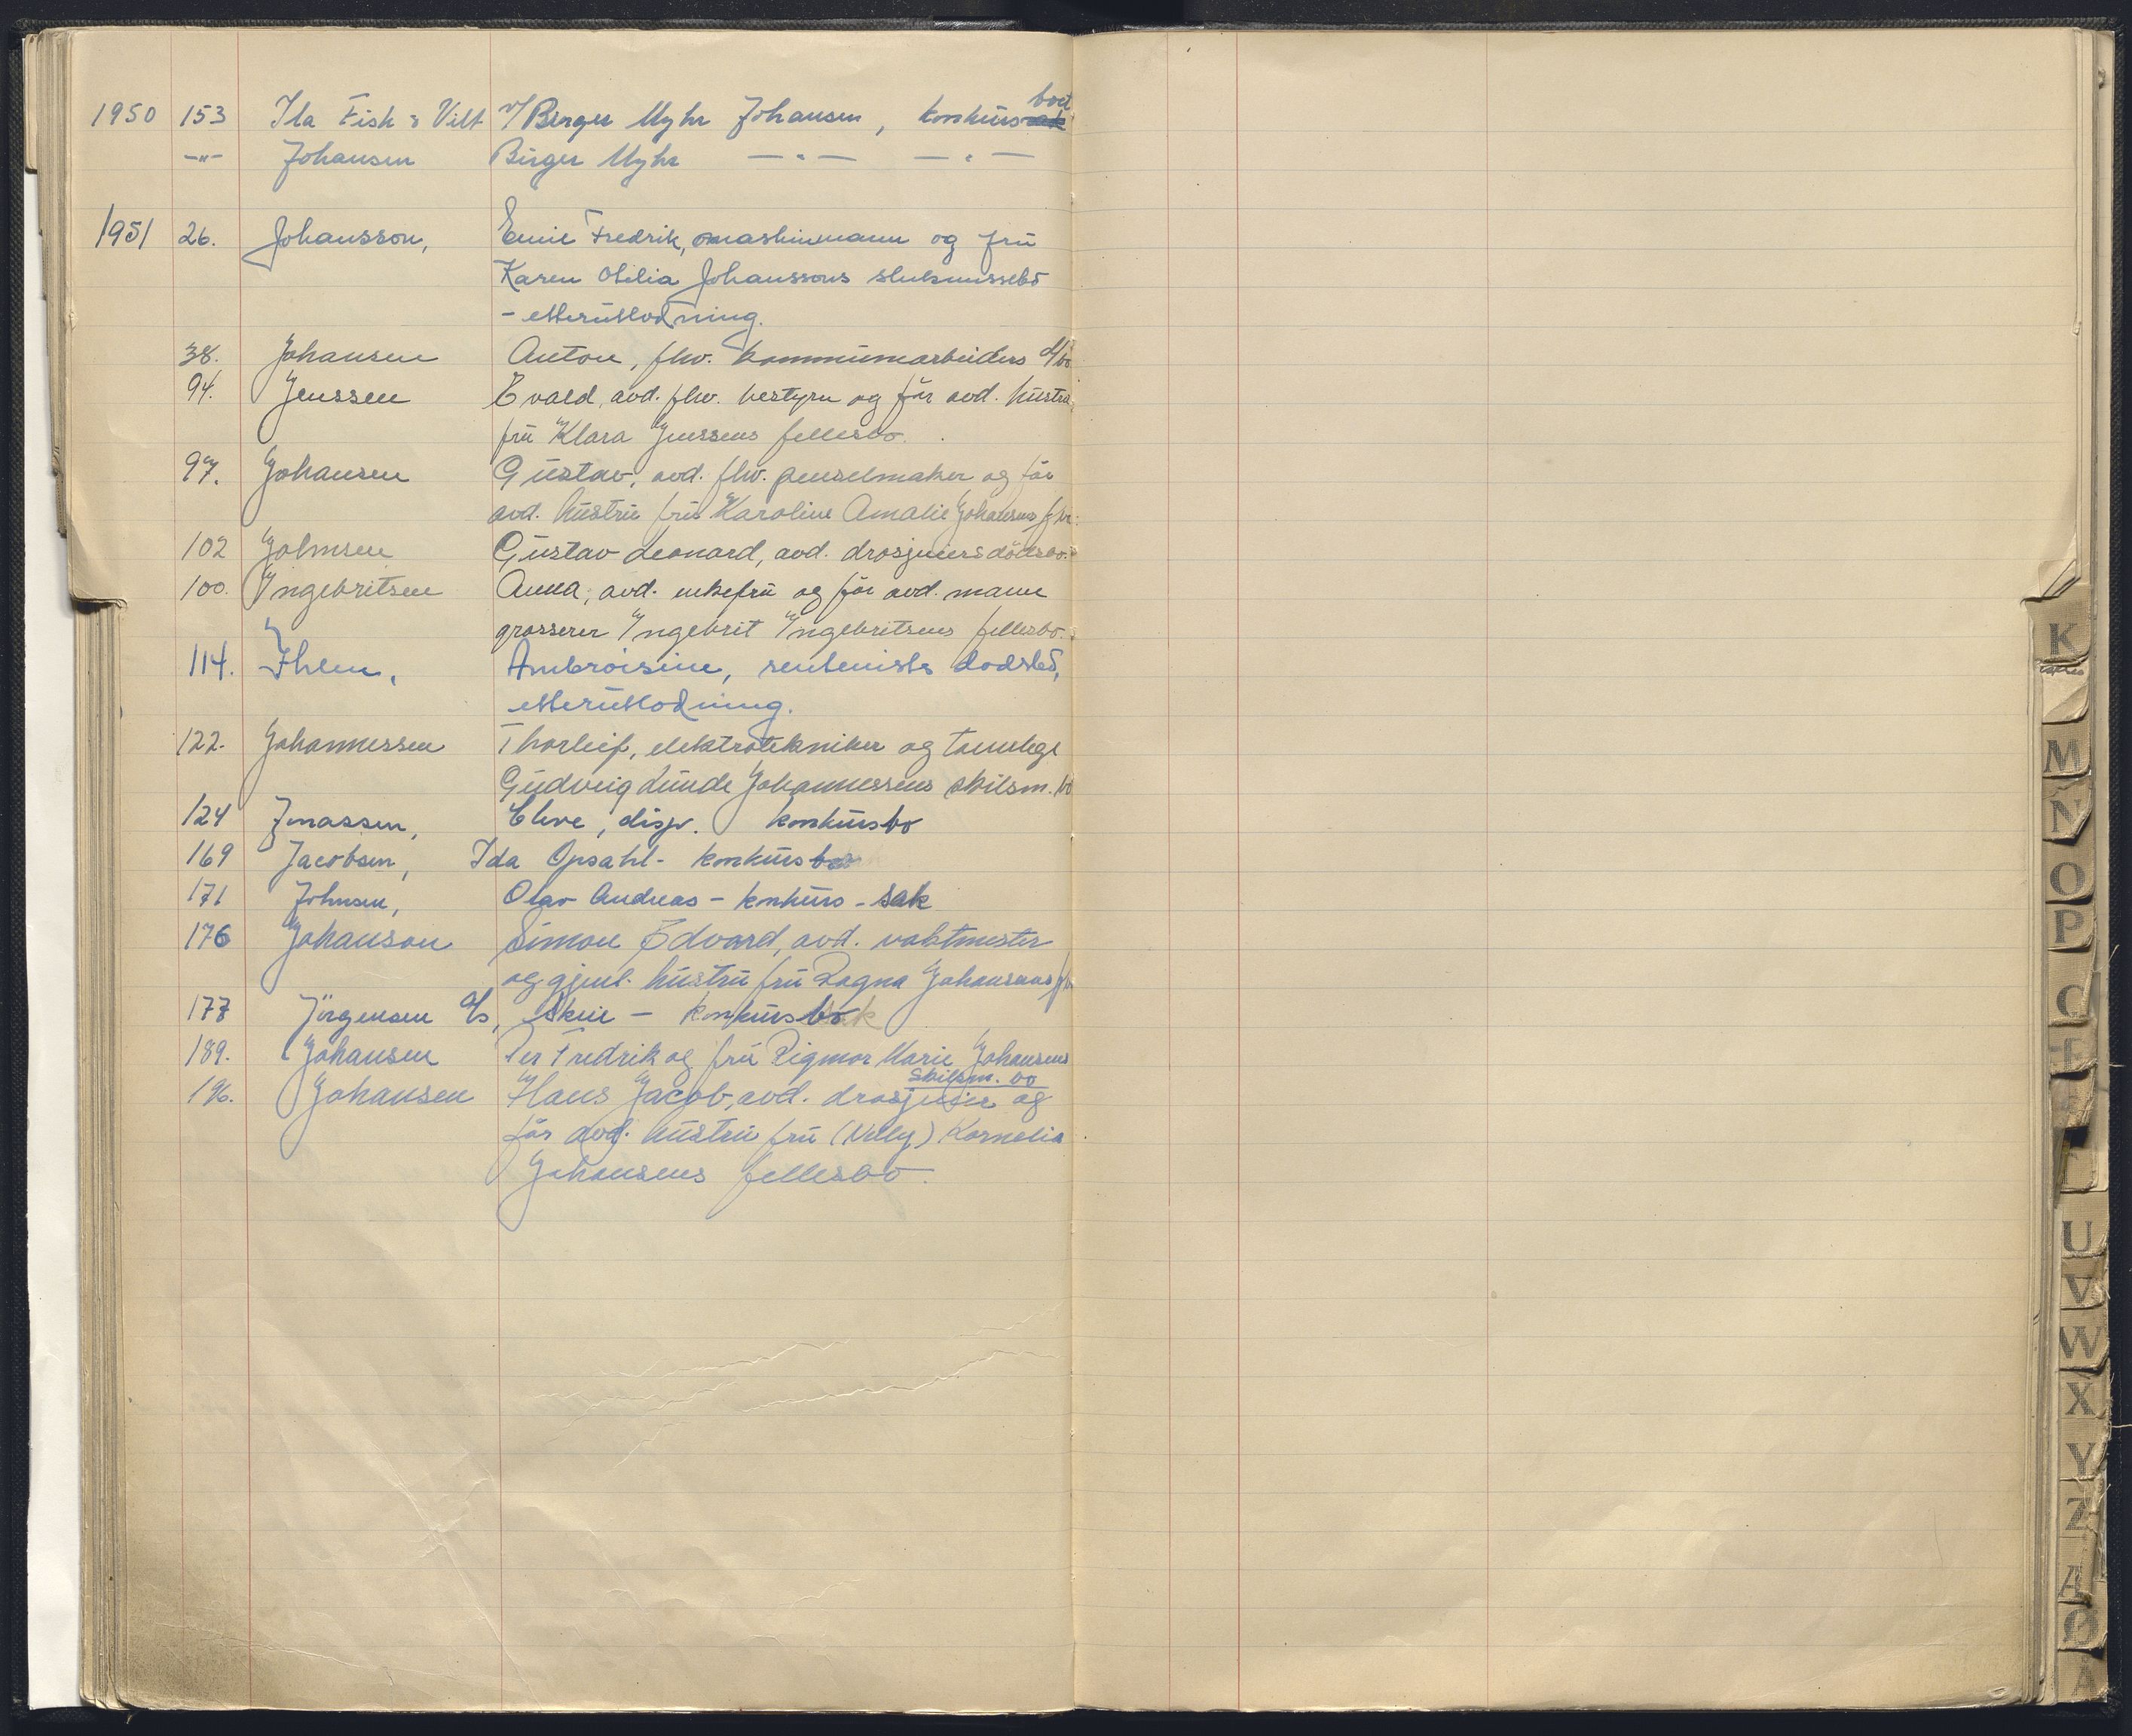 1950 153 Ila Fisk & Vilt v/ Birger Myhr Johansen, konkurs boet
—"— Johansen Birger Myhr —"— —"—
1951 26. Johansson, Emil Fredrik, maskinmann og fru
Karen Otilia Johanssons
- etterutlodning.
38. Johansen Anton, fhv. kommunearbeiders d/bo
94. Jenssen Evald, avd. fhv. bestyrer og før avd. hustru
fru Klara Jenssens fellesbo.
97. Johansen Gustav, avd. fhv. penselmaker og før
avd. hustru fru Karoline Amalie Johansens
102 Johnsen Gustav Leonard, avd. drosjeeiers dödsbo.
100. Ingebritsen Anna, avd. enkefru og før avd. mann
grosserer Ingebrit Ingebritsens fellesbo.
114. Ihlen, Ambroisine, rentenists dødsbo,
etterutlodning.
122. Johannessen Thorleif, elektrotekniker og tannlege
Gudveig Lunde Johannessens skilsm. bo
124 Jonassen, disp. konkursbo
169 Jacobsen, Ida Opsahl - konkursbo
171 Johnsen, Olav Andreas - konkurs - sak
176 Johanson Simon Edvard, avd. vaktmester
og gjenl. hustru fru Ragna Johansons
177 Jörgensen A/s, Skui - konkursbo
189. Johansen Per Fredrik og fru Rigmor Marie Johansens
skilsm. bo
196. Johansen Hans Jacob, avd. drosjeeier og
før avd. hustru fru (Nelly) Kornelia
Johansens fellesbo.
K
M
N
O
P
U
V
W
X
Y
Z
Ø